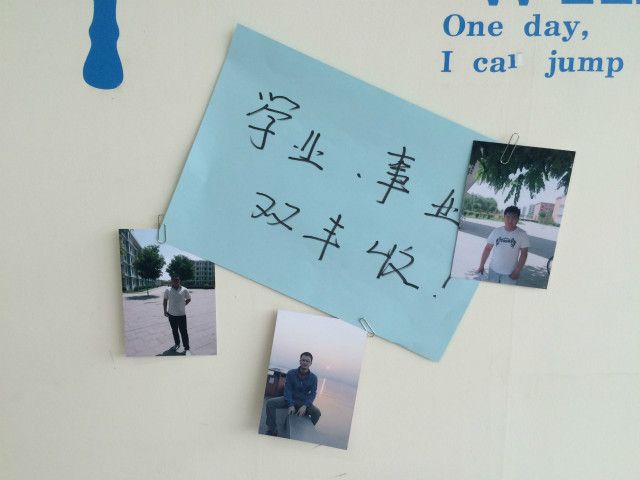 One day,
I can jump
学业、事业
双丰收!